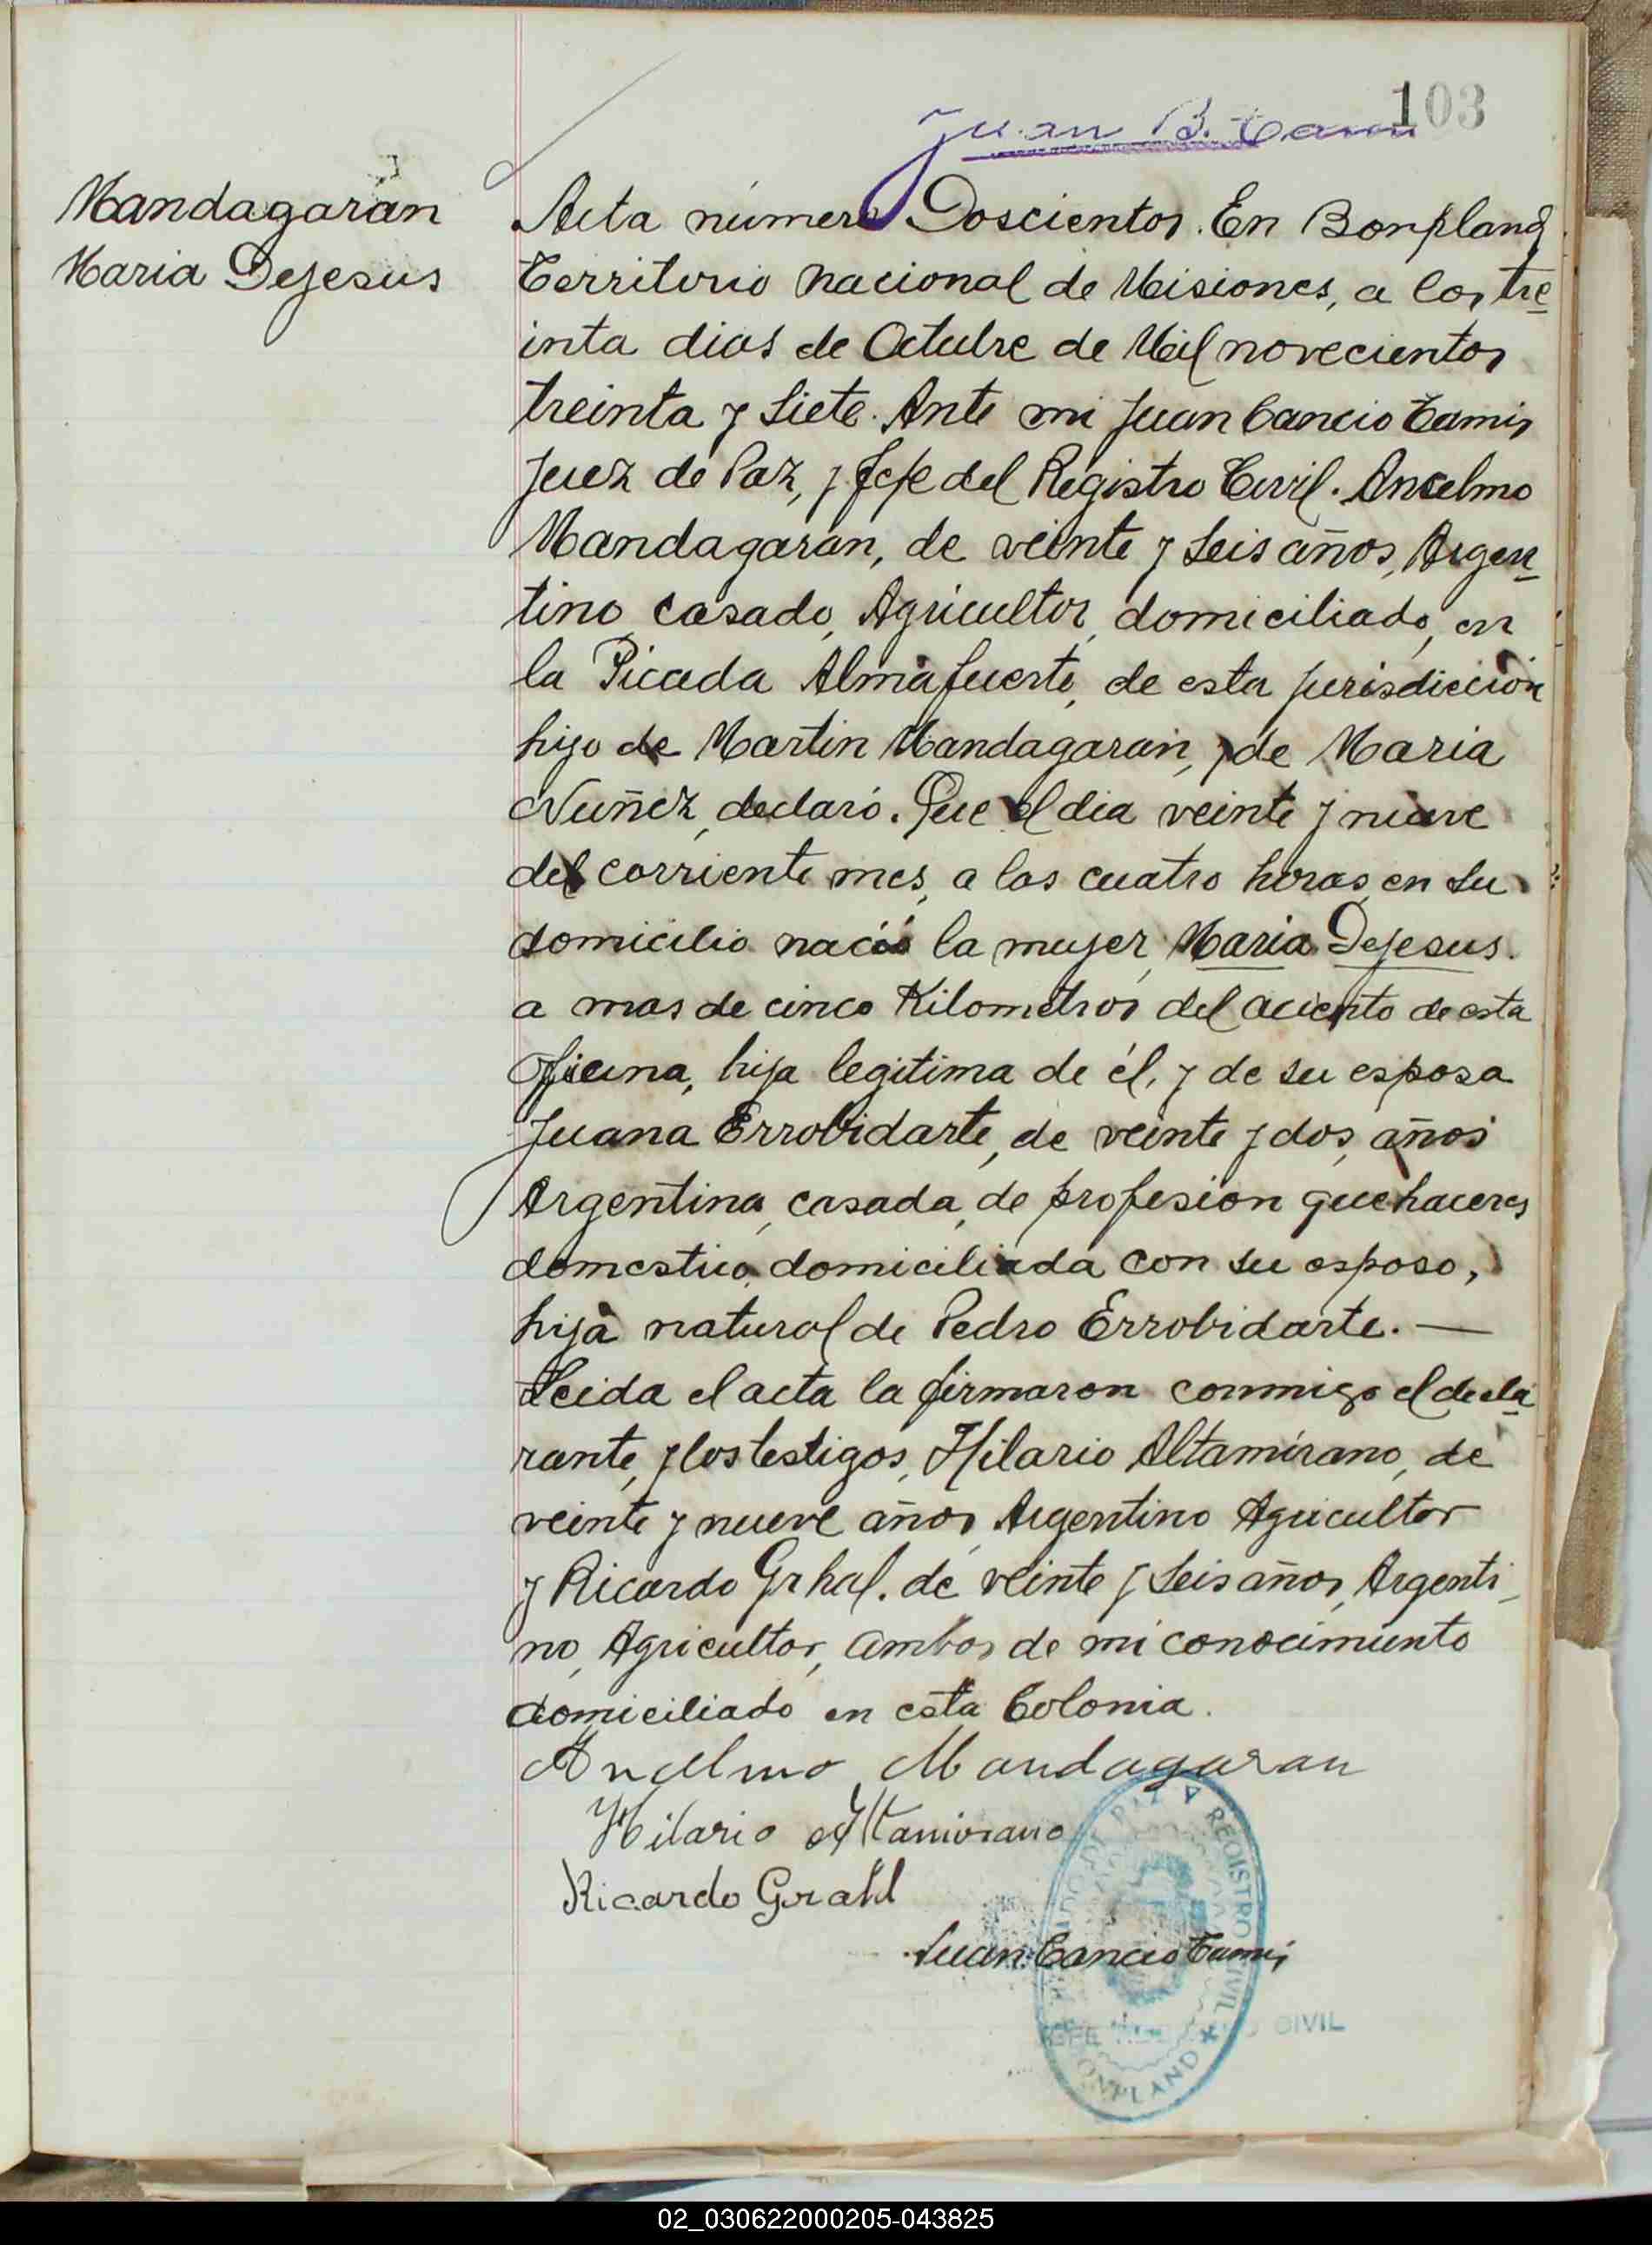 103
Juan B.
Mandagarán
Maria Dejesus
Acta número Doscientos. En Bonpland
Territorio Nacional de Misiones, a los tre
inta dias de Octubre de Mil novecientos
treinta y Siete. Ante mi Juan Cancio Tamis
Juez de Paz, y Jefe del Registro Civil. Anselmo
Mandagarán, de veinte y Seis años, Argen
tino casado, Agricultor, domiciliado, en
la Picada Almafuerte, de esta jurisdicción
hijo de Martin Mandagaran, y de Maria
Nuñez, declaró. Que el dia veinte y nueve
del corriente mes, a las cuatro horas, en su
domicilio nació la mujer, Maria Dejesus.
a mas de cinco Kilometros del aciento de esta
Oficina, hija legitima de él, y de su esposa
Juana Errobidarte, de veinte y dos, años
Argentina, casada, de profesion quehaceres
domestico, domiciliada con su esposo,
hija natural de Pedro Errobidarte. —
Leida el acta la firmaron conmigo el decla
rante, y los testigos, Hilario Altamirano, de
veinte y nueve años, Argentino Agricultor
y Ricardo Grhal. de veinte y Seis años, Argenti
no, Agricultor, ambos de mi conocimiento
domiciliado en esta Colonia.
Anselmo Mandagaran
Hilario Altamirano
Ricardo Grahl
Juan Cancio Tamis
DE PAZ Y REGISTRO CIVIL
BONPLAND
CIVIL
02_030622000205-043825